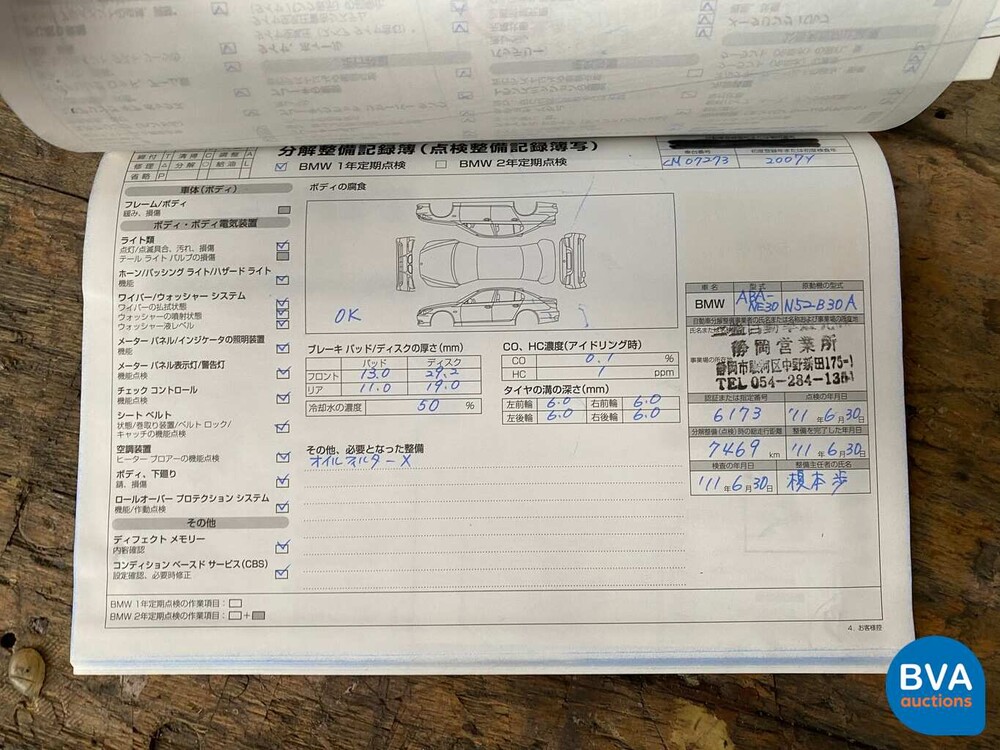 分解整備記録簿(点検整備記録簿写)
BMW 1年定期点検 BMW 2年定期点検
省略 P
車台番号
CM07273 2007Y
車体(ボディ)
フレーム/ボディ
緩み、損傷
ボディ・ボディ電気装置
ライト類
点灯/点滅具合、汚れ、損傷
テール ライト バルブの損傷
ホーン/パッシング ライト/ハザード ライト
機能
ワイパー/ウォッシャー システム
ワイパーの払拭状態
ウォッシャーの噴射状態
ウォッシャー液レベル
メーター パネル/インジケータの照明装置
機能
メーター パネル表示灯/警告灯
機能点検
チェック コントロール
機能点検
シート ベルト
状態/巻取り装置/ベルト ロック/
キャッチの機能点検
空調装置
ヒーター ブロアーの機能点検
ボディ、下廻り
錆、損傷
ロールオーバー プロテクション システム
機能/作動点検
その他
ディフェクト メモリー
内容確認
コンディション ベースド サービス(CBS)
設定確認、必要時修正
BMW 1年定期点検の作業項目:
BMW 2年定期点検の作業項目: +
ボディの腐食
OK
ブレーキ パッド/ディスクの厚さ(mm)
パッド ディスク
フロント 13.0 29.2
リア 11.0 19.0
冷却水の濃度 50 %
CO、HC濃度(アイドリング時)
CO 0.1 %
HC 1 ppm
タイヤの溝の深さ(mm)
左前輪 6.0 右前輪 6.0
左後輪 6.0 右後輪 6.0
その他、必要となった整備
オイルフィルターX
車名 型式 原動機の型式
BMW ABA-NE30 N52-B30A
静岡営業所
静岡市駿河区中野新田175-1
TEL 054-284-13
認証または指定番号 点検の年月日
6173 '11年6月30日
分解整備(点検)時の総走行距離 整備を完了した年月日
7469 km '11年6月30日
検査の年月日 整備主任者の氏名
'11年6月30日 榎本歩
4. お客様控
BVA
auctions